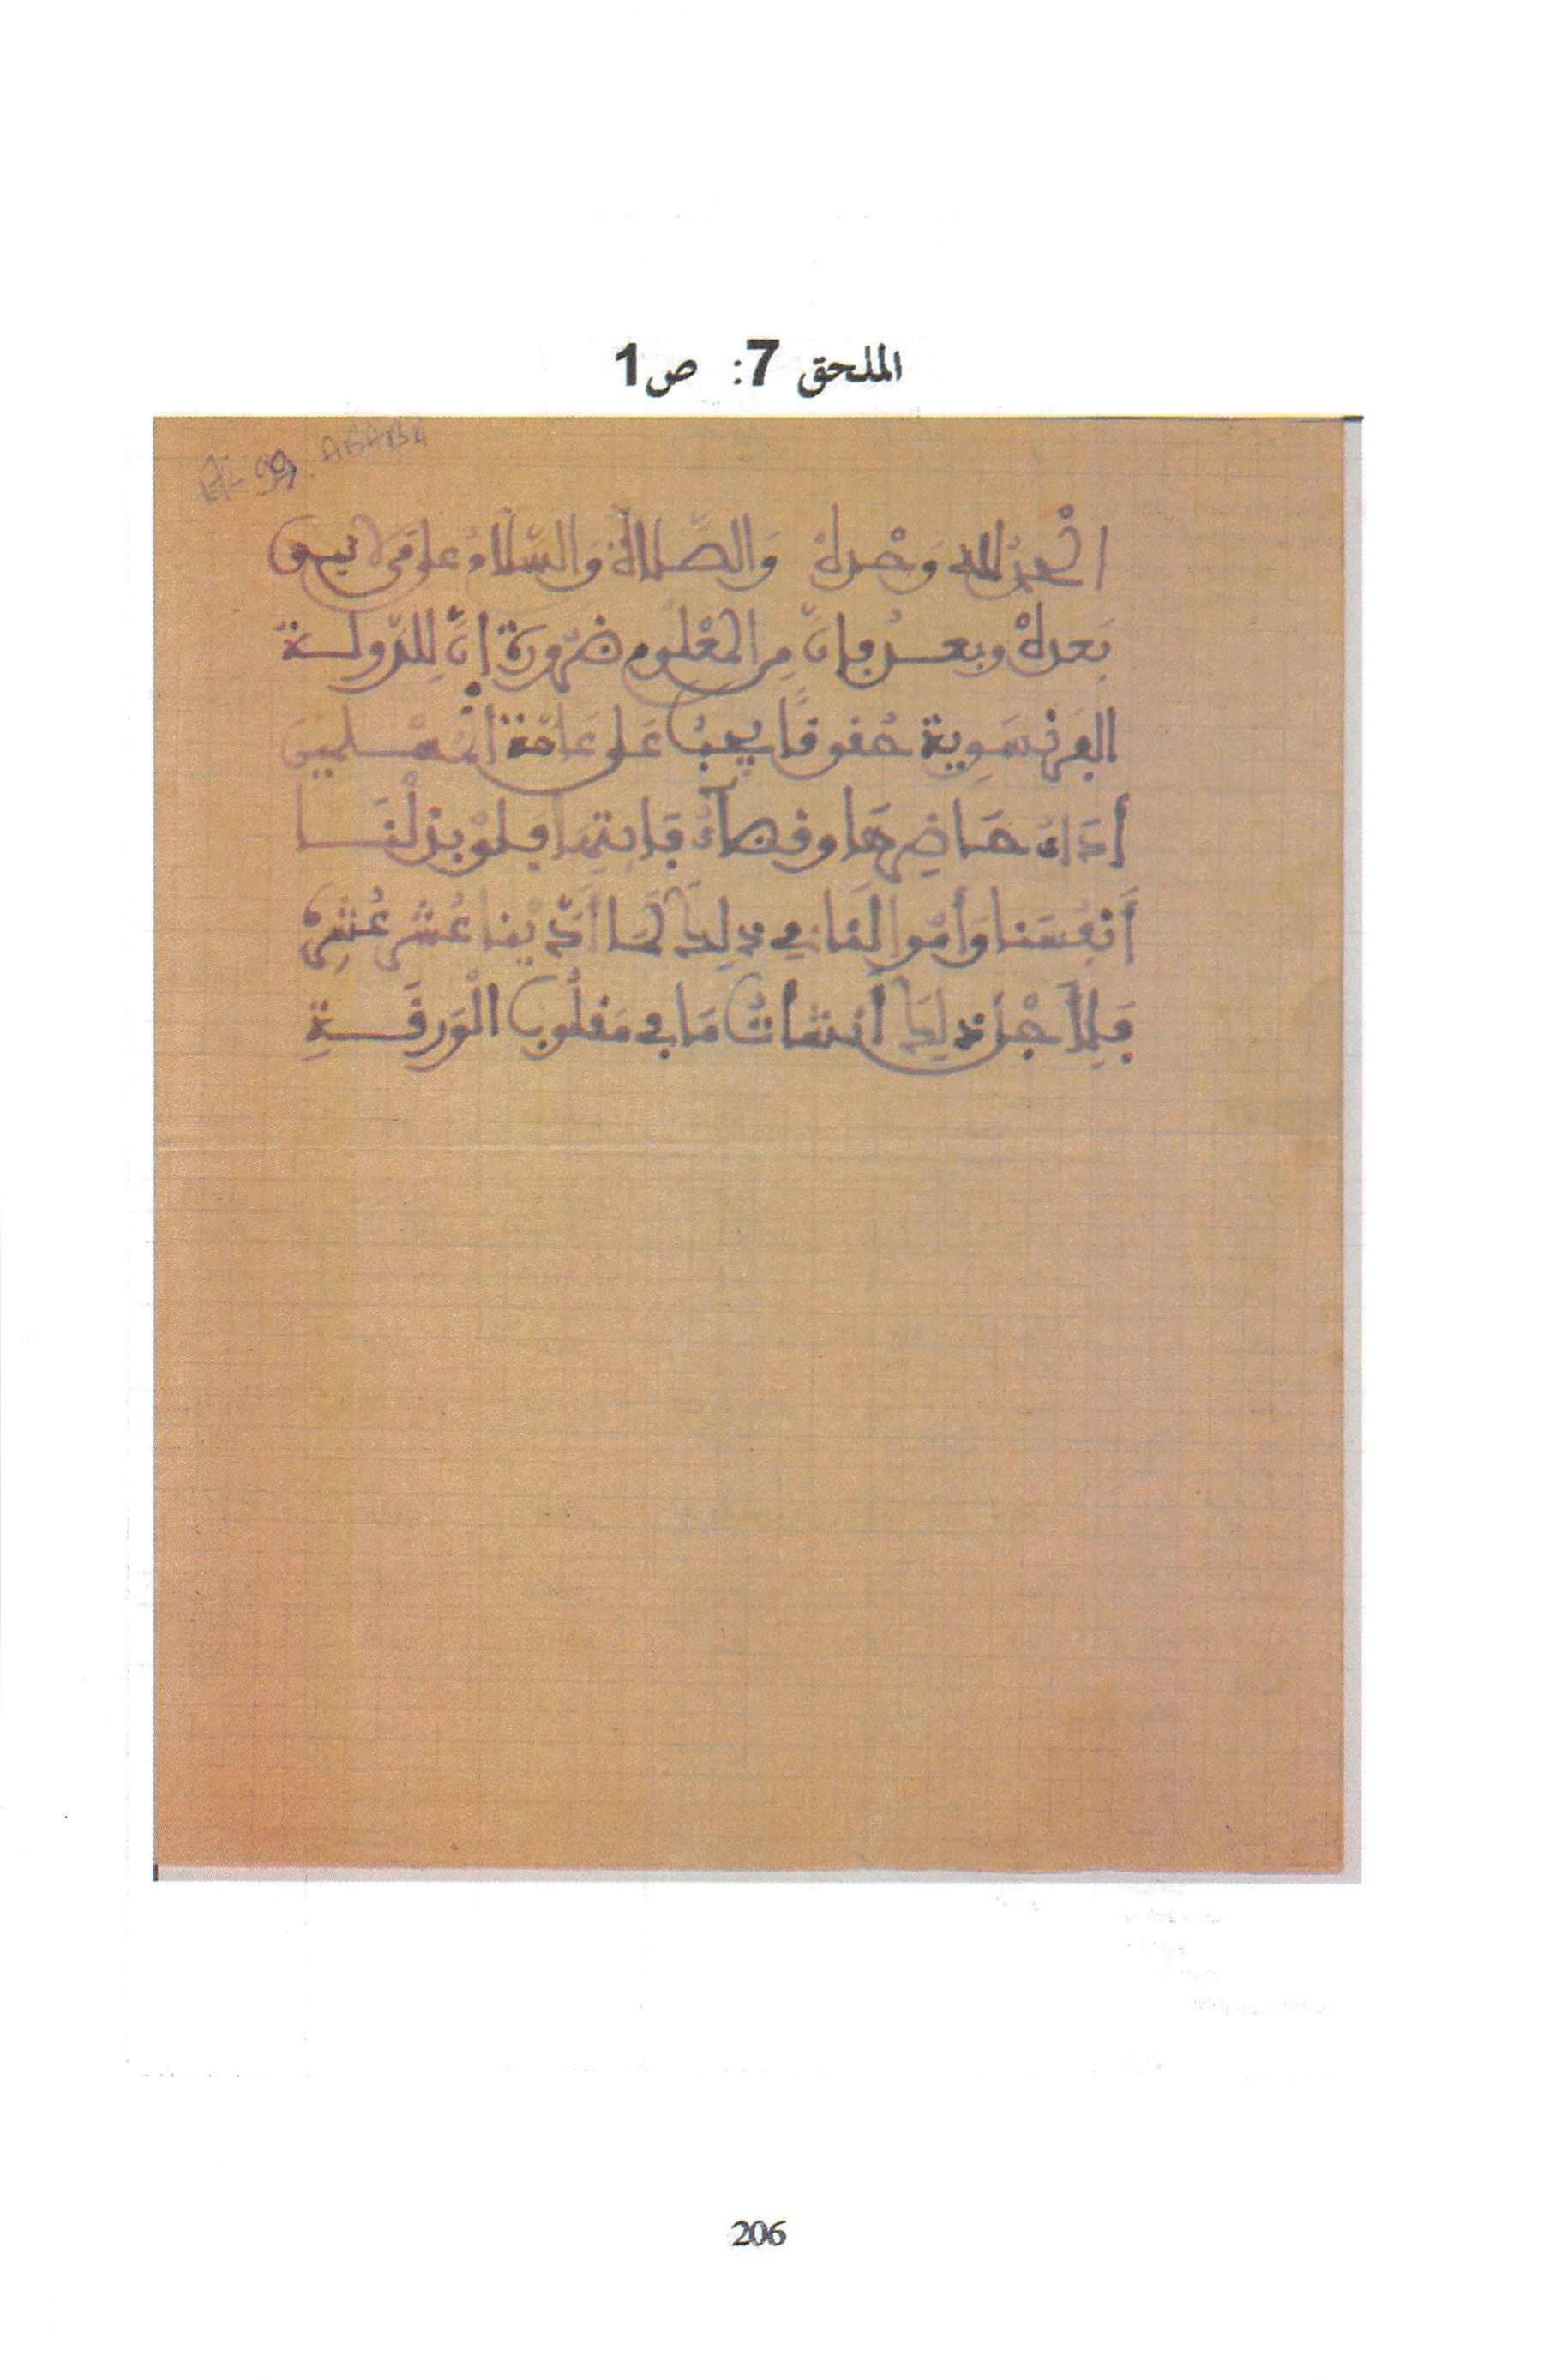 الملحق 7: ص1
الحمد لله وَحْدهُ وَالصَّلاةُ وَالسَّلامُ على مَن لا نبيء
بَعدهُ وبعد فإنَّ مِن المعْلوم ضَرورةً إنَّ لِلدّولة
الفَرنسَوِية حُقوقًا يجبُ عَلى عَامّة المُسْلمينَ
أدَاءُ حَاضِرِهَا وقضآءُ فَايِتِهَا فلوْ بذلْنَا
أَنفُسَنا وَأمْوالَنا في ذلِكَ لَمَا أدّيْنا عُشرَ عُشُرِهِ
فَلِأَجْل ذلِكَ أنشأتُ مَا في مَقلُوب الْوَرَقَةِ
206